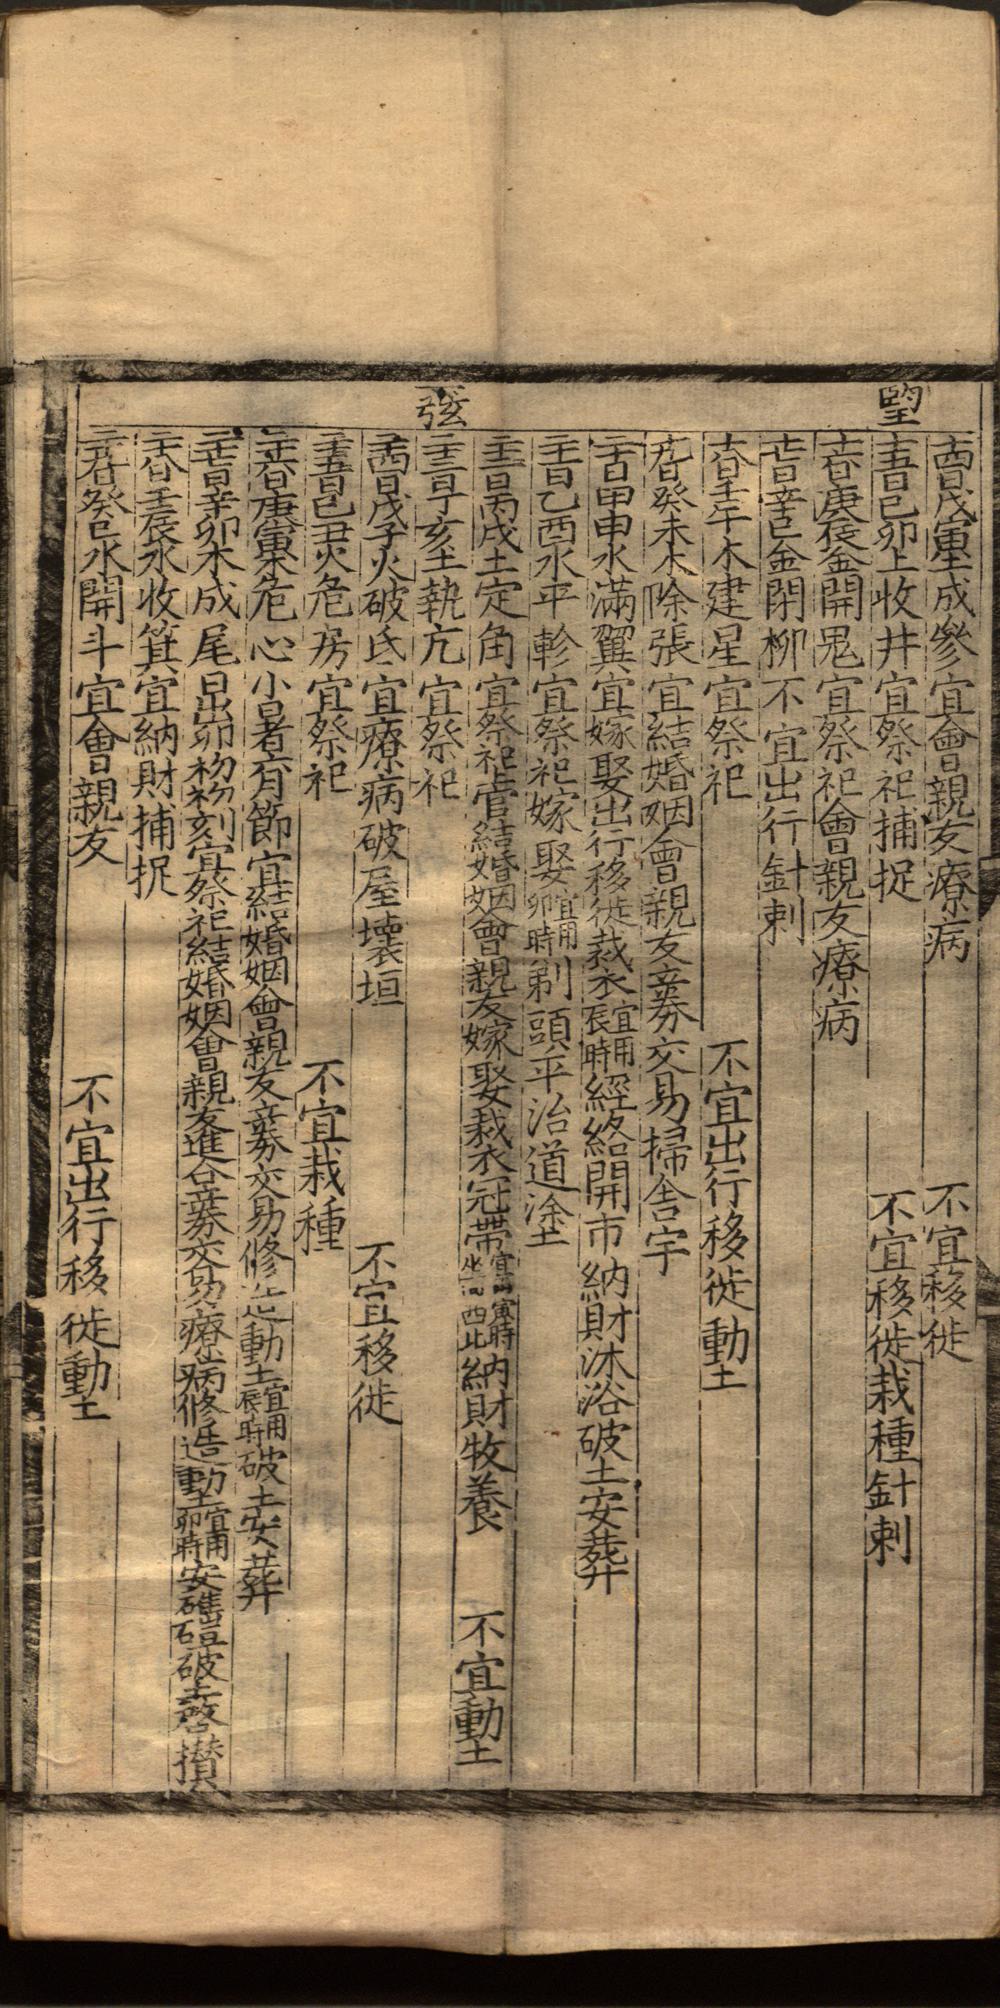 望
弦
十四日戊寅土成參宜會親友療病 不宜移徙
十五日己卯土收井宜祭祀捕捉 不宜移徙栽種針刺
十六日庚辰金開鬼宜祭祀會親友療病
十七日辛巳金閉柳不宜出行針刺
十八日壬午木建星宜祭祀 不宜出行移徙動土
十九日癸未木除張宜結婚姻會親友立券交易掃舍宇
二十日甲申水滿翼宜嫁娶出行移徙裁衣宜用辰時經絡開市納財沐浴破土安葬
二十一日乙酉水平軫宜祭祀嫁娶宜用卯時剃頭平治道塗
二十二日丙戌土定角宜祭祀結婚姻會親友嫁娶裁衣冠帶宜用寅時坐向西北納財牧養 不宜動土
二十三日丁亥土執亢宜祭祀
二十四日戊子火破氐宜療病破屋壞垣 不宜移徙
二十五日己丑火危房宜祭祀 不宜栽種
二十六日庚寅木危心小暑六月節宜結婚姻會親友立券交易修造動土宜用辰時破土安葬
二十七日辛卯木成尾日出卯初初刻宜祭祀結婚姻會親友進人口立券交易療病修造動土宜用卯時安碓磑破土啓攢
二十八日壬辰水收箕宜納財捕捉
二十九日癸巳水開斗宜會親友 不宜出行移徙動土